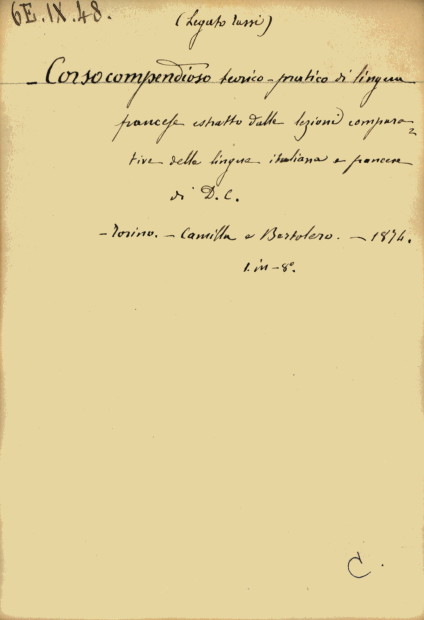 6E.IX.48.
(Legato Tassi)
- Corso compendioso teorico-pratico di lingua
francese estratto dalle lezioni compara
tive delle lingue italiana e francese
di D. C.
- Torino. - Camilla e Bertolero. - 1874.
1. in-8°
C.